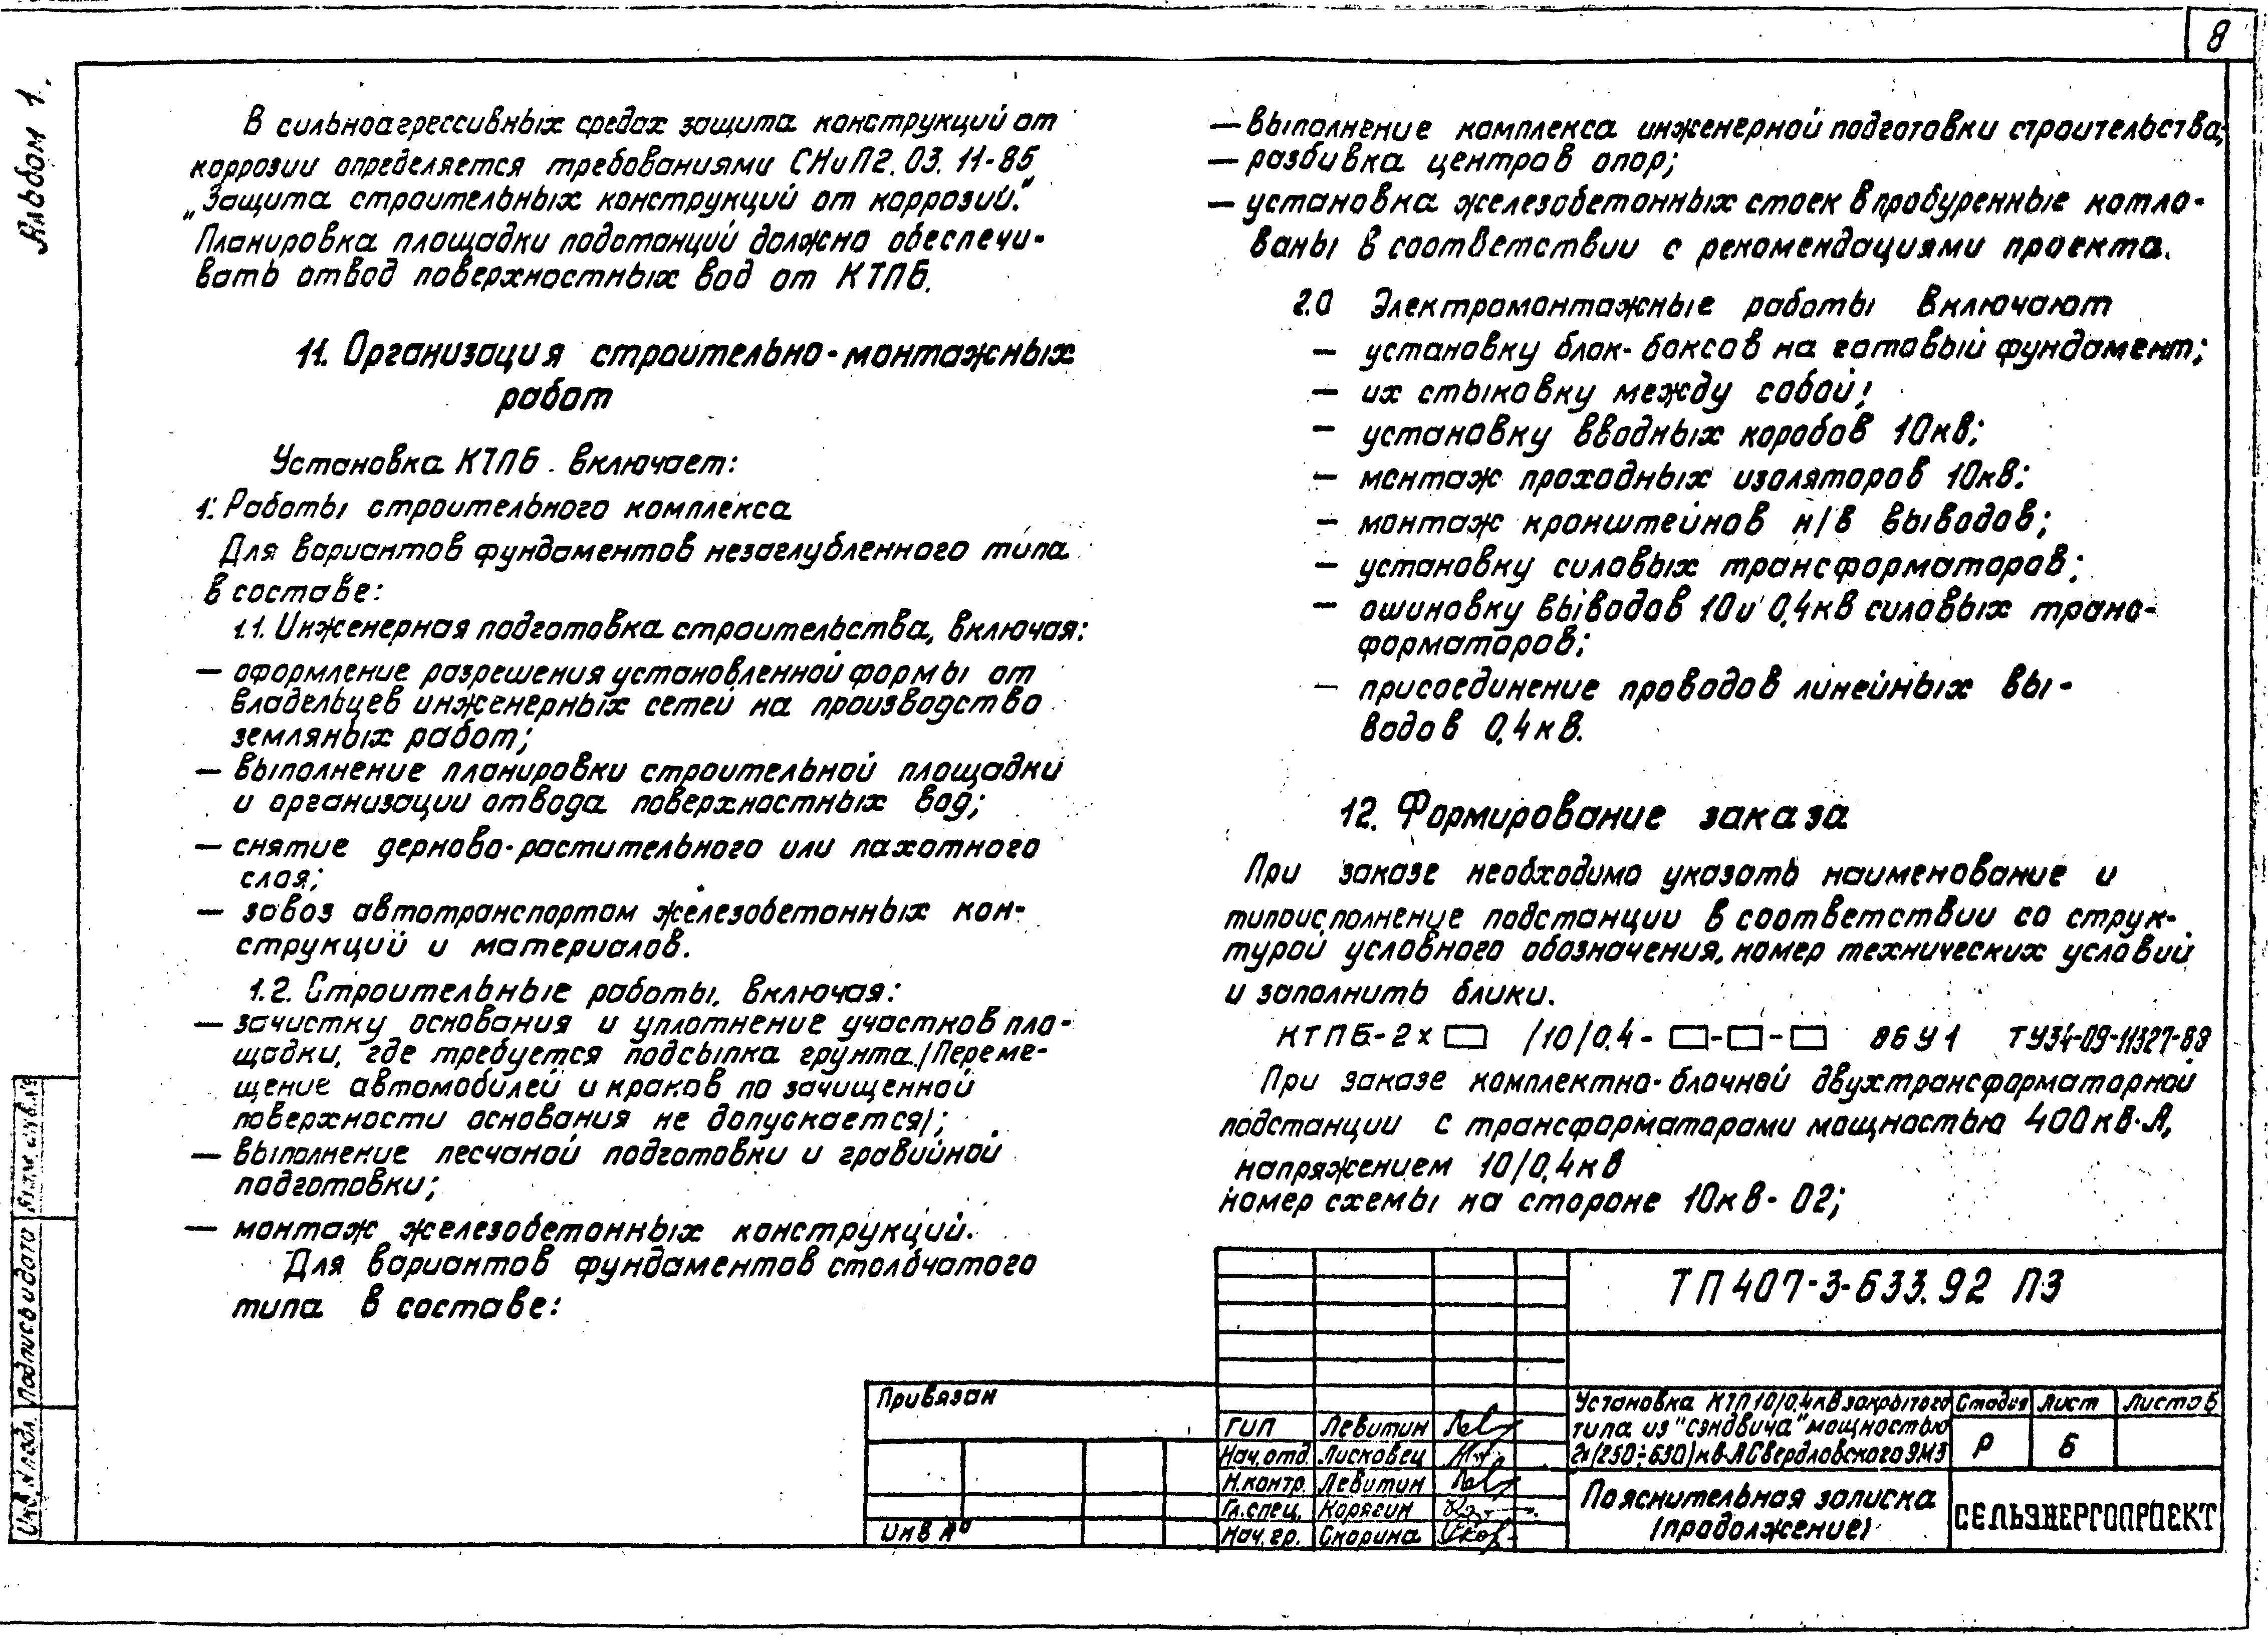 8
Альбом 1.
В сильноагрессивных средах защита конструкций от
коррозии определяется требованиями СНиП2.03.11-85
„Защита строительных конструкций от коррозий."
Планировка площадки подстанций должна обеспечи-
вать отвод поверхностных вод от КТПБ.
11. Организация строительно-монтажных
работ
Установка КТПБ включает:
1. Работы строительного комплекса
Для вариантов фундаментов незаглубленного типа
в составе:
1.1. Инженерная подготовка строительства, включая:
— оформление разрешения установленной формы от
владельцев инженерных сетей на производство
земляных работ;
— выполнение планировки строительной площадки
и организации отвода поверхностных вод;
— снятие дерново-растительного или пахотного
слоя;
— завоз автотранспортом железобетонных кон-
струкций и материалов.
1.2. Строительные работы, включая:
— зачистку основания и уплотнение участков пло-
щадки, где требуется подсыпка грунта./Переме-
щение автомобилей и кранов по зачищенной
поверхности основания не допускается/;
— выполнение песчаной подготовки и гравийной
подготовки;
— монтаж железобетонных конструкций.
Для вариантов фундаментов столбчатого
типа в составе:
— выполнение комплекса инженерной подготовки строительства;
— разбивка центров опор;
— установка железобетонных стоек в пробуренные котло-
ваны в соответствии с рекомендациями проекта.
2.0 Электромонтажные работы включают
— установку блок-боксов на готовый фундамент;
— их стыковку между собой;
— установку вводных коробов 10кВ;
— монтаж проходных изоляторов 10кВ;
— монтаж кронштейнов н/в выводов;
— установку силовых трансформаторов;
— ошиновку выводов 10 и 0,4кВ силовых транс-
форматоров;
— присоединение проводов линейных вы-
водов 0,4кВ.
12. Формирование заказа
При заказе необходимо указать наименование и
типоисполнение подстанции в соответствии со струк-
турой условного обозначения, номер технических условий
и заполнить блики.
КТПБ-2х▭ /10/0,4-▭-▭-▭ 86У1 ТУ34-09-11327-89
При заказе комплектно-блочной двухтрансформаторной
подстанции с трансформаторами мощностью 400кВ·А,
напряжением 10/0,4кВ
номер схемы на стороне 10кВ- 02;
ТП 407-3-633.92 ПЗ
Привязан
Инв №
ГИП Левитин
Нач.отд. Лисковец
Н.контр. Левитин
Гл.спец. Карягин
Нач.гр. Скорина
Установка КТП10/0,4кВ закрытого
типа из "сэндвича" мощностью
2х(250÷630)кВ·А Свердловского ЭМЗ
Стадия Лист Листов
Р 6
Пояснительная записка
/продолжение/
СЕЛЬЭНЕРГОПРОЕКТ
Инв. № подл. Подпись и дата